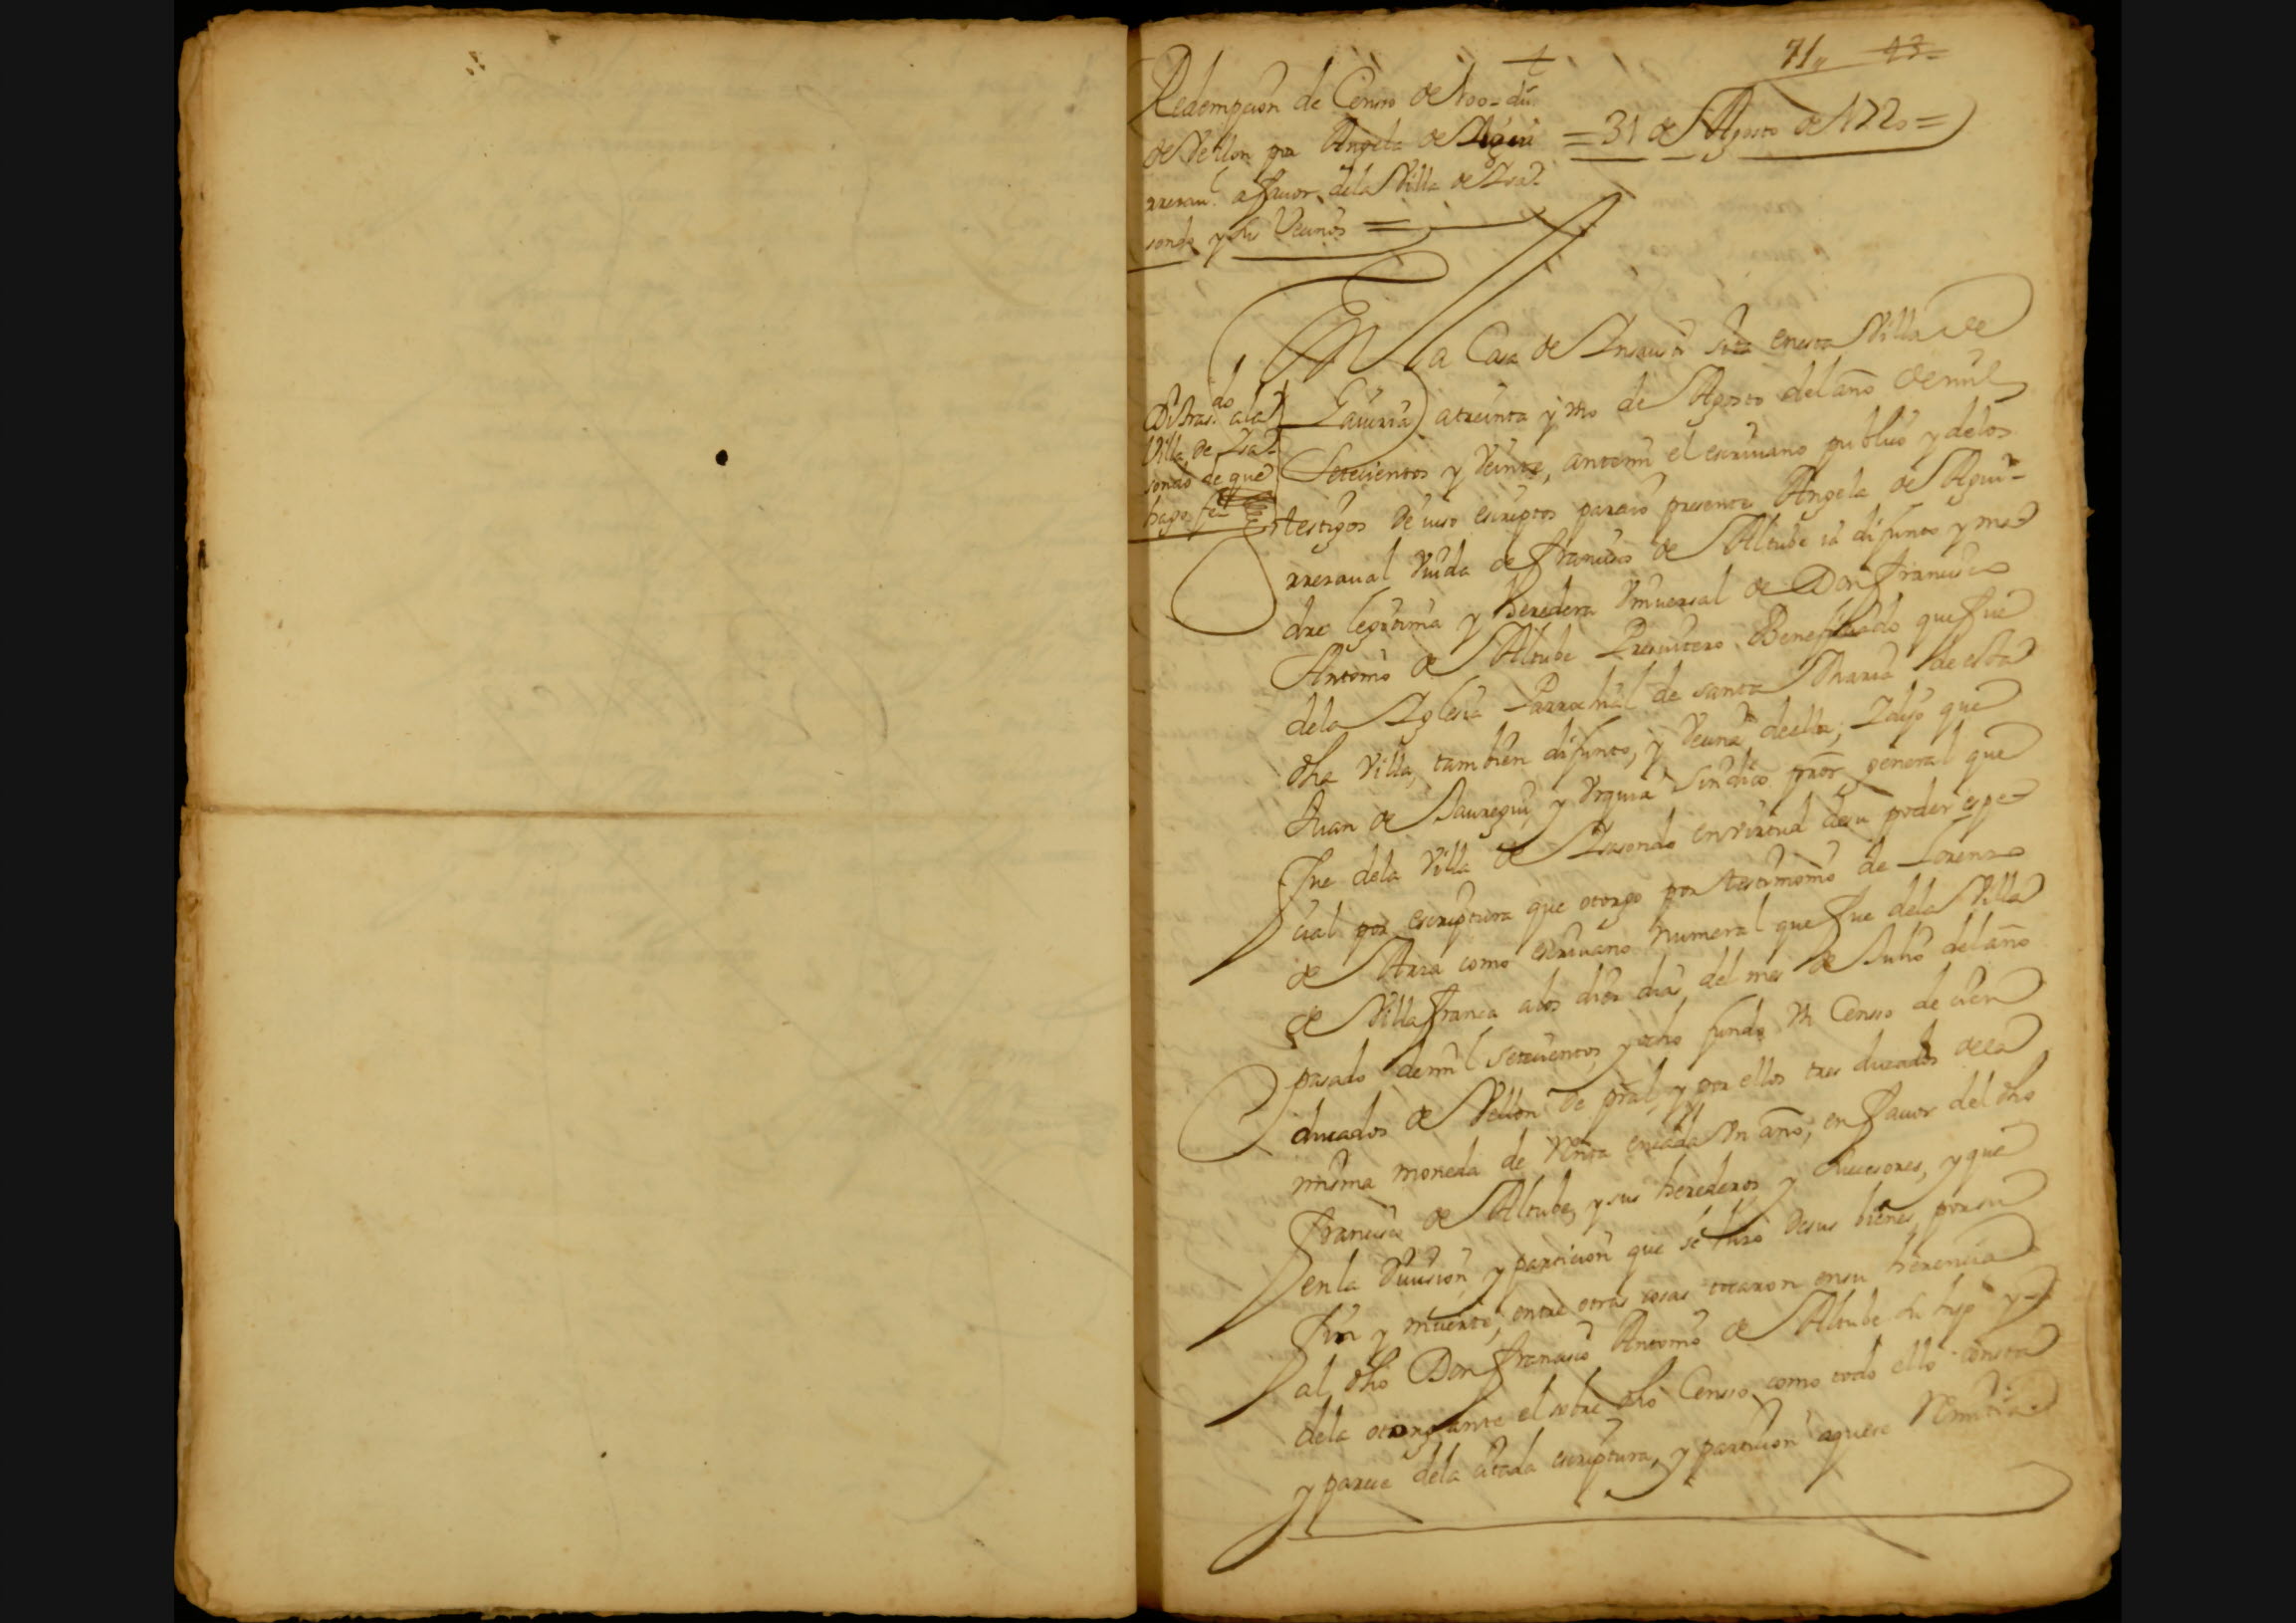 71,, 43=
Redempcion de Censo de 100-du.
de Vellon por Angela de Aguirre
rresaual a fauor dela Villa de Isa-
sondo y sus Vecinos =
= 31 de Agosto de 1720 =
En la Casa de Insausti sita enesta Villa de
Lazcano atreinta y vno de Agosto del año de mil
Setecientos y Veinte, antemi el escriuano publico y delos
testigos de iuso escriptos parecio presente Angela de Aguir-
rresaual Viuda de Francisco de Altube ia difunto y ma-
dre legitima y heredera Vniuersal de Don Francisco
Antonio de Altube Presuitero Beneficiado que fue
dela Iglesia Parrochial de santa Maria de esta
dha Villa, tambien difunto, y Vecina de ella; I dijo que
Juan de Jauregui y Vrquia Sindico pror. general que
fue dela Villa de Isasondo en virtud de su poder espe-
cial por escriptura que otorgo por testimonio de Lorenzo
de Arza como escriuano numeral que fue dela Villa
de Villafranca alos diez dias del mes de Julio del año
pasado de mil Setecientos y ocho fundo Vn Censo de cien
ducados de Vellon de pral, y por ellos tres ducados de la
misma moneda de renta encada Vn año; en fauor del dho
Francisco de Altube y sus herederos y subcesores, y que
en la Diuision, y particion que se hizo de sus bienes por su
fin y muerte, entre otras cosas tocaron en su herencia
al dho Don Francisco Antonio de Altube su hijo y
dela otorgante el sobre dho Censo como todo ello consta
y parece dela citada escriptura, y particion aque se remitia
Di tras.do ala
Villa de Isa-
sondo de que
hago fee